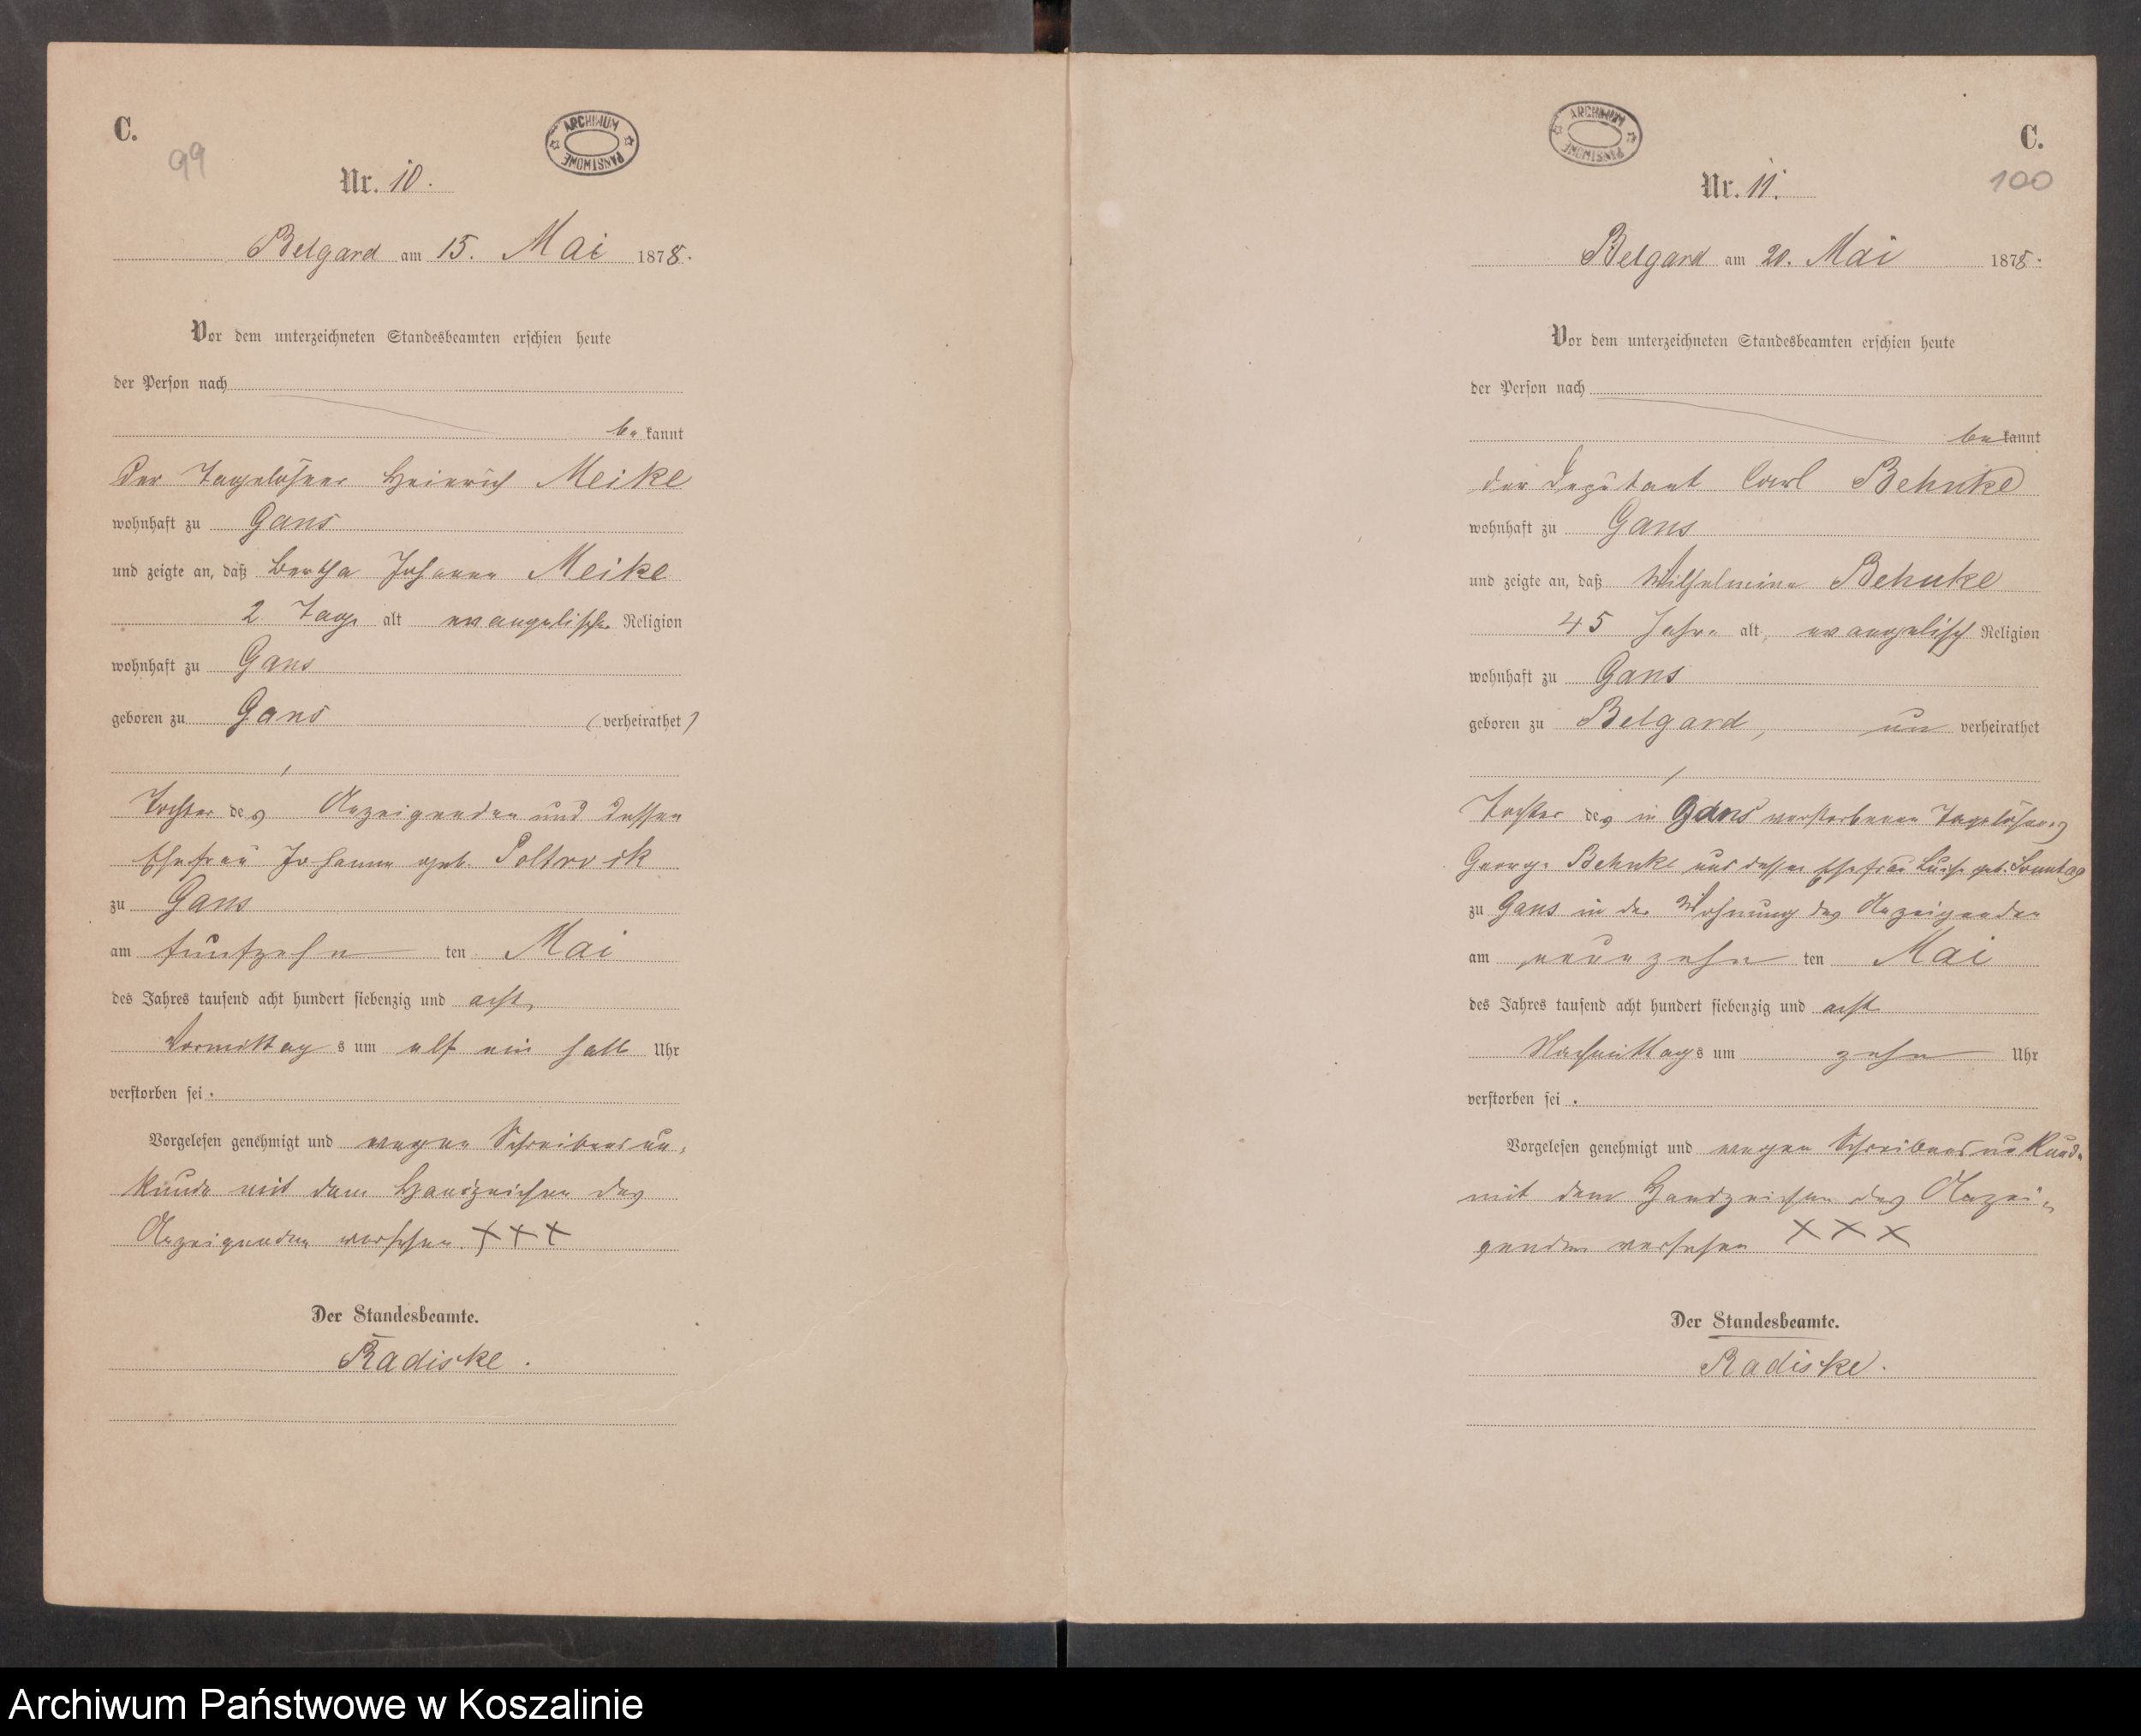 C.
99
ARCHIWUM PAŃSTWOWE
Nr. 10.
Belgard am 15. Mai 1878.
Vor dem unterzeichneten Standesbeamten erschien heute
der Person nach
be kannt
der Tagelöhner Heinrich Meike
wohnhaft zu Gans
und zeigte an, daß Bertha Johanne Meike
2 Tage alt evangelische Religion
wohnhaft zu Gans
geboren zu Gans (verheirathet)
Tochter des Anzeigenden und dessen
Ehefrau Johanne geb. Poltrock
zu Gans
am funfzehn ten Mai
des Jahres tausend acht hundert siebenzig und acht,
Vormittag s um elf ein halb Uhr
verstorben sei.
Vorgelesen genehmigt und wegen Schreibensun-
kunde mit dem Handzeichen des
Anzeigenden versehen. +++
Der Standesbeamte.
Radiske.
C.
100
ARCHIWUM PAŃSTWOWE
Nr. 11.
Belgard am 20. Mai 1878.
Vor dem unterzeichneten Standesbeamten erschien heute
der Person nach
be kannt
der Deputant Carl Behnke
wohnhaft zu Gans
und zeigte an, daß Wilhelmine Behnke
45 Jahre alt, evangelisch Religion
wohnhaft zu Gans
geboren zu Belgard, un verheirathet
Tochter des in Gans verstorbenen Tagelöhners
George Behnke und dessen Ehefrau Luise geb. Sonntag
zu Gans in der Wohnung des Anzeigenden
am neunzehn ten Mai
des Jahres tausend acht hundert siebenzig und acht
Nachmittags um zehn Uhr
verstorben sei.
Vorgelesen genehmigt und wegen Schreibensunkunde
mit dem Handzeichen des Anzei-
genden versehen XXX
Der Standesbeamte.
Radiske.
Archiwum Państwowe w Koszalinie